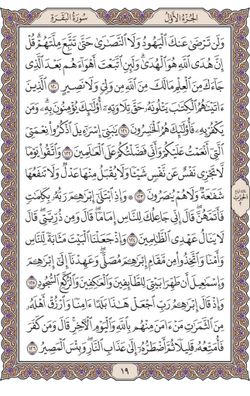 الجزء الأول
سورة البقرة
ولن ترضى عنك اليهود ولا النصارى حتى تتبع ملتهم قل
إن هدى الله هو الهدى ولئن اتبعت أهواءهم بعد الذى
جاءك من العلم مالك من الله من ولى ولا نصير ١٢٠ الذين
ءاتينهم الكتب يتلونه حق تلاوته أولئك يؤمنون به ومن
يكفر به فأولئك هم الخسرون ١٢١ يبنى إسرءيل اذكروا نعمتى
التى أنعمت عليكم وأنى فضلتكم على العلمين ١٢٢ واتقوا يوما
لا تجزى نفس عن نفس شيئا ولا يقبل منها عدل ولا تنفعها
شفعة ولا هم ينصرون ١٢٣ وإذ ابتلى إبرهم ربه بكلمت
فأتمهن قال إنى جاعلك للناس إماما قال ومن ذريتى قال
لا ينال عهدى الظلمين ١٢٤ وإذ جعلنا البيت مثابة للناس
وأمنا واتخذوا من مقام إبرهم مصلى وعهدنا إلى إبرهم
وإسمعيل أن طهرا بيتى للطائفين والعكفين والركع السجود ١٢٥
وإذ قال إبرهم رب اجعل هذا بلدا ءامنا وارزق أهله
من الثمرت من ءامن منهم بالله واليوم الآخر قال ومن كفر
فأمتعه قليلا ثم أضطره إلى عذاب النار وبئس المصير ١٢٦
١٩